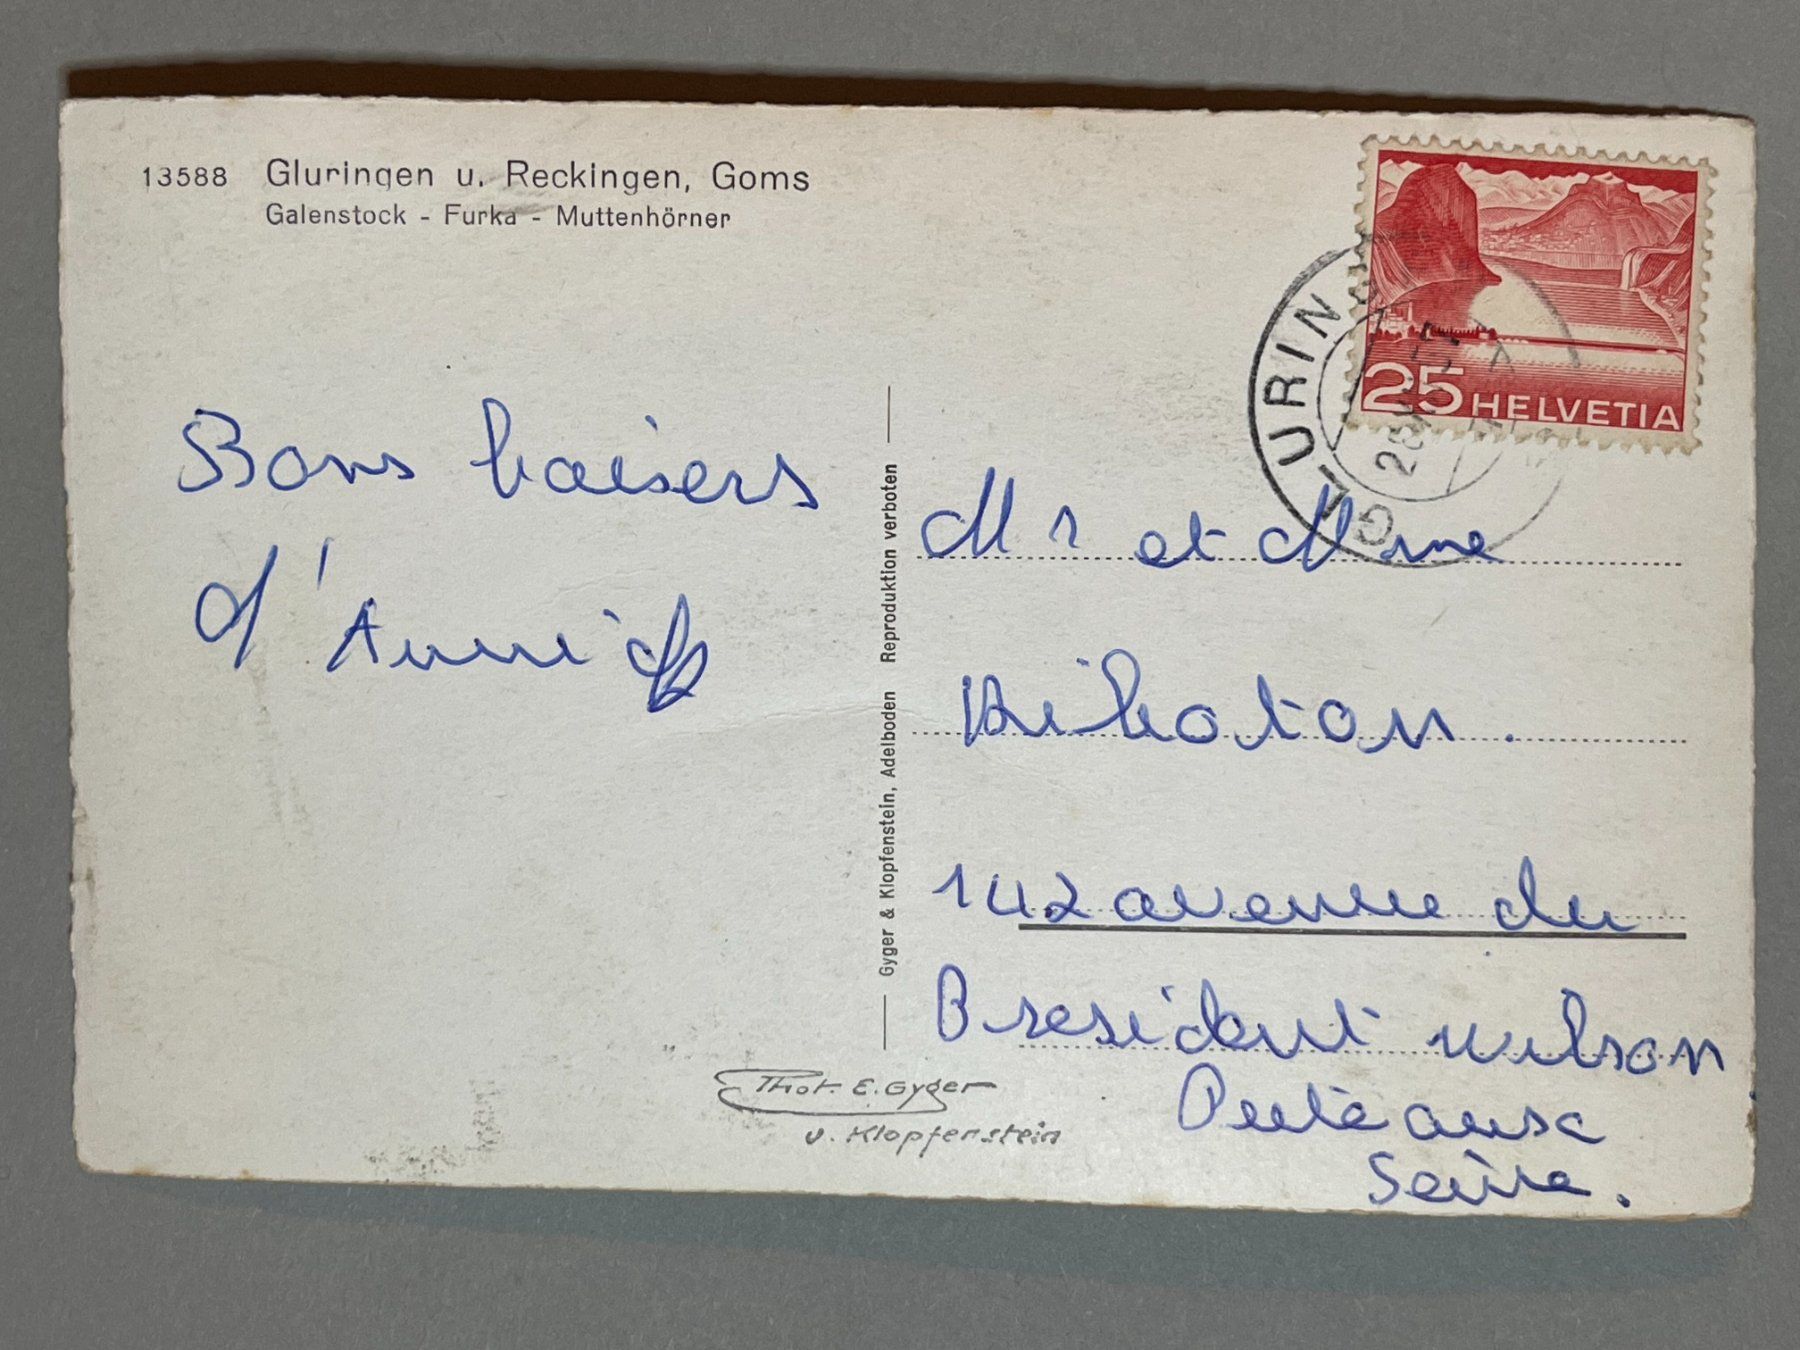 13588 Gluringen u. Reckingen, Goms
Galenstock - Furka - Muttenhörner
25 HELVETIA
GLURIN
Bons baisers
d'Annick
Gyger & Klopfenstein, Adelboden Reproduktion verboten
Mr et Mme
Riboton.
142 avenue du
President Wilson
Puteaux
Seine.
Phot. E. Gyger
u. Klopfenstein